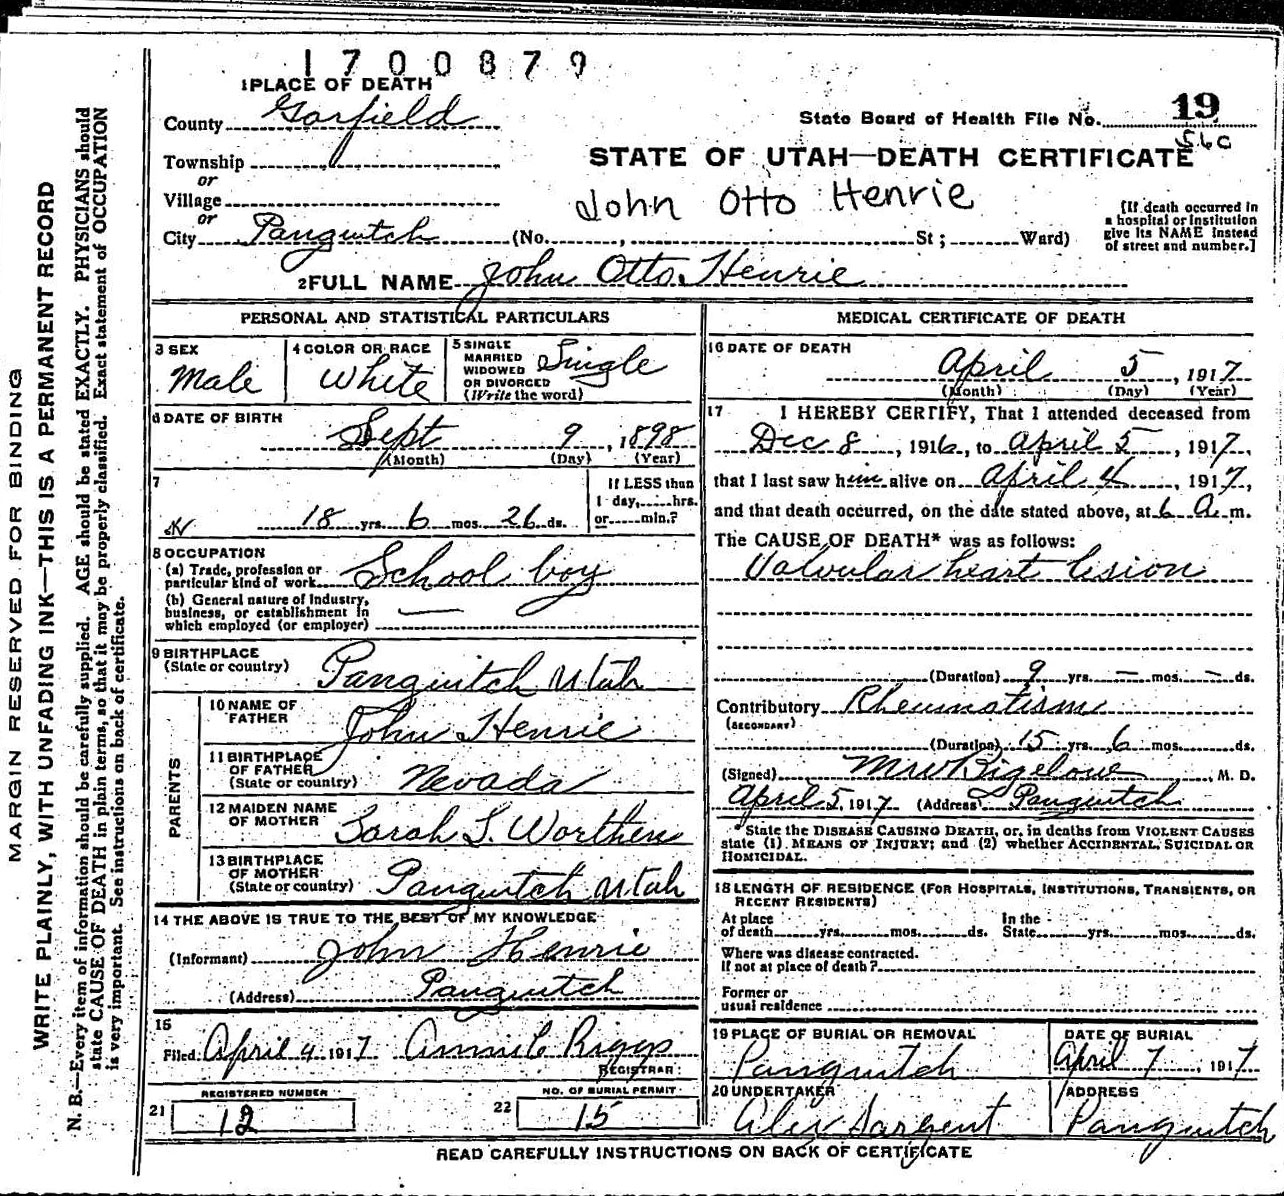 1700879
1 PLACE OF DEATH
County Garfield
State Board of Health File No. 19
56c
Township
or
STATE OF UTAH—DEATH CERTIFICATE
Village
or
John Otto Henrie
[If death occurred in
a hospital or institution
give its NAME instead
of street and number.]
City Panguitch (No. , St ; Ward)
2 FULL NAME John Otto Henrie
PERSONAL AND STATISTICAL PARTICULARS
3 SEX
Male
4 COLOR OR RACE
White
5 SINGLE
MARRIED
WIDOWED
OR DIVORCED
(Write the word)
Single
6 DATE OF BIRTH
Sept 9, 1898
(Month) (Day) (Year)
7
18 yrs. 6 mos. 26 ds.
If LESS than
1 day, hrs.
or min.?
8 OCCUPATION
(a) Trade, profession or
particular kind of work School boy
(b) General nature of industry,
business, or establishment in
which employed (or employer) —
9 BIRTHPLACE
(State or country) Panguitch Utah
PARENTS
10 NAME OF
FATHER John Henrie
11 BIRTHPLACE
OF FATHER
(State or country) Nevada
12 MAIDEN NAME
OF MOTHER Sarah S. Worthen
13 BIRTHPLACE
OF MOTHER
(State or country) Panguitch Utah
14 THE ABOVE IS TRUE TO THE BEST OF MY KNOWLEDGE
(Informant) John Henrie
(Address) Panguitch
15
Filed April 9 1917 Annie C Riggs
REGISTRAR
REGISTERED NUMBER
21 12
NO. OF BURIAL PERMIT
22 15
MEDICAL CERTIFICATE OF DEATH
16 DATE OF DEATH
April 5, 1917
(Month) (Day) (Year)
17 I HEREBY CERTIFY, That I attended deceased from
Dec 8, 1916, to April 5, 1917,
that I last saw him alive on April 4, 1917,
and that death occurred, on the date stated above, at 6 A. m.
The CAUSE OF DEATH* was as follows:
Valvular heart lesion
(Duration) 9 yrs. — mos. — ds.
Contributory Rheumatism
(SECONDARY)
(Duration) 15 yrs. 6 mos. ds.
(Signed) M W Bigelow, M. D.
April 5, 1917 (Address) Panguitch
*State the DISEASE CAUSING DEATH, or, in deaths from VIOLENT CAUSES
state (1) MEANS OF INJURY; and (2) whether ACCIDENTAL, SUICIDAL OR
HOMICIDAL.
18 LENGTH OF RESIDENCE (FOR HOSPITALS, INSTITUTIONS, TRANSIENTS, OR
RECENT RESIDENTS)
At place
of death yrs. mos. ds.
In the
State yrs. mos. ds.
Where was disease contracted.
If not at place of death?
Former or
usual residence
19 PLACE OF BURIAL OR REMOVAL
Panguitch
DATE OF BURIAL
April 7, 1917
20 UNDERTAKER
Alex Sargent
ADDRESS
Panguitch
READ CAREFULLY INSTRUCTIONS ON BACK OF CERTIFICATE
MARGIN RESERVED FOR BINDING
WRITE PLAINLY, WITH UNFADING INK—THIS IS A PERMANENT RECORD
N. B.—Every item of information should be carefully supplied. AGE should be stated EXACTLY. PHYSICIANS should
state CAUSE OF DEATH in plain terms, so that it may be properly classified. Exact statement of OCCUPATION
is very important. See instructions on back of certificate.